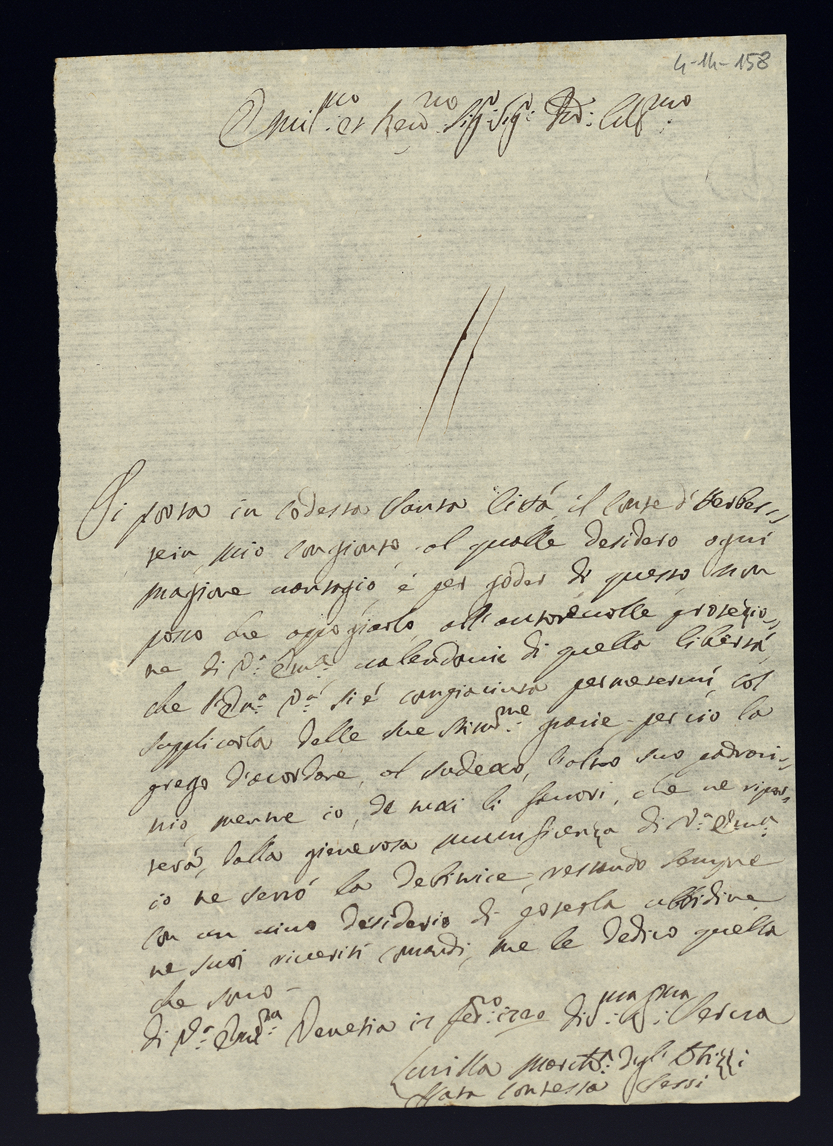 4-14-158
Emi.mo et Reu.mo Sig.r Sig.r Pro: Coll.mo
Si porta in codesta Santa Città, il Conte d'Herbes=
tein mio congionto, al qualle desidero ogni
magiore uantagio, é per goder di questo non
posso che apogiarlo all'autoreuolle protezio=
ne di V.a Em.a ualendomi di quella libertà,
che l'Em.a V.a si é compiaciuta permetermi, col
supplicarla delle sue stim.me grazie - perciò la
prego d'acordare, al sudetto, l'alto suo patroci=
nio, mentre io, de tuti li fauori, che ne ripor=
terà, dalla gienerosa munificenza di V.a Em.a
io ne serrò la debitrice, restando sempre
con un uiuo desiderio di poterla ubbidire
ne suoi riueriti comandi, me le dedico quella
che sono -
di V.a Em.za Venetia 17 Feb.ro 1720 Di.ma Ob.ma Serua
Lucilla March.a degl'Obizzi
Nata Contessa Sessi